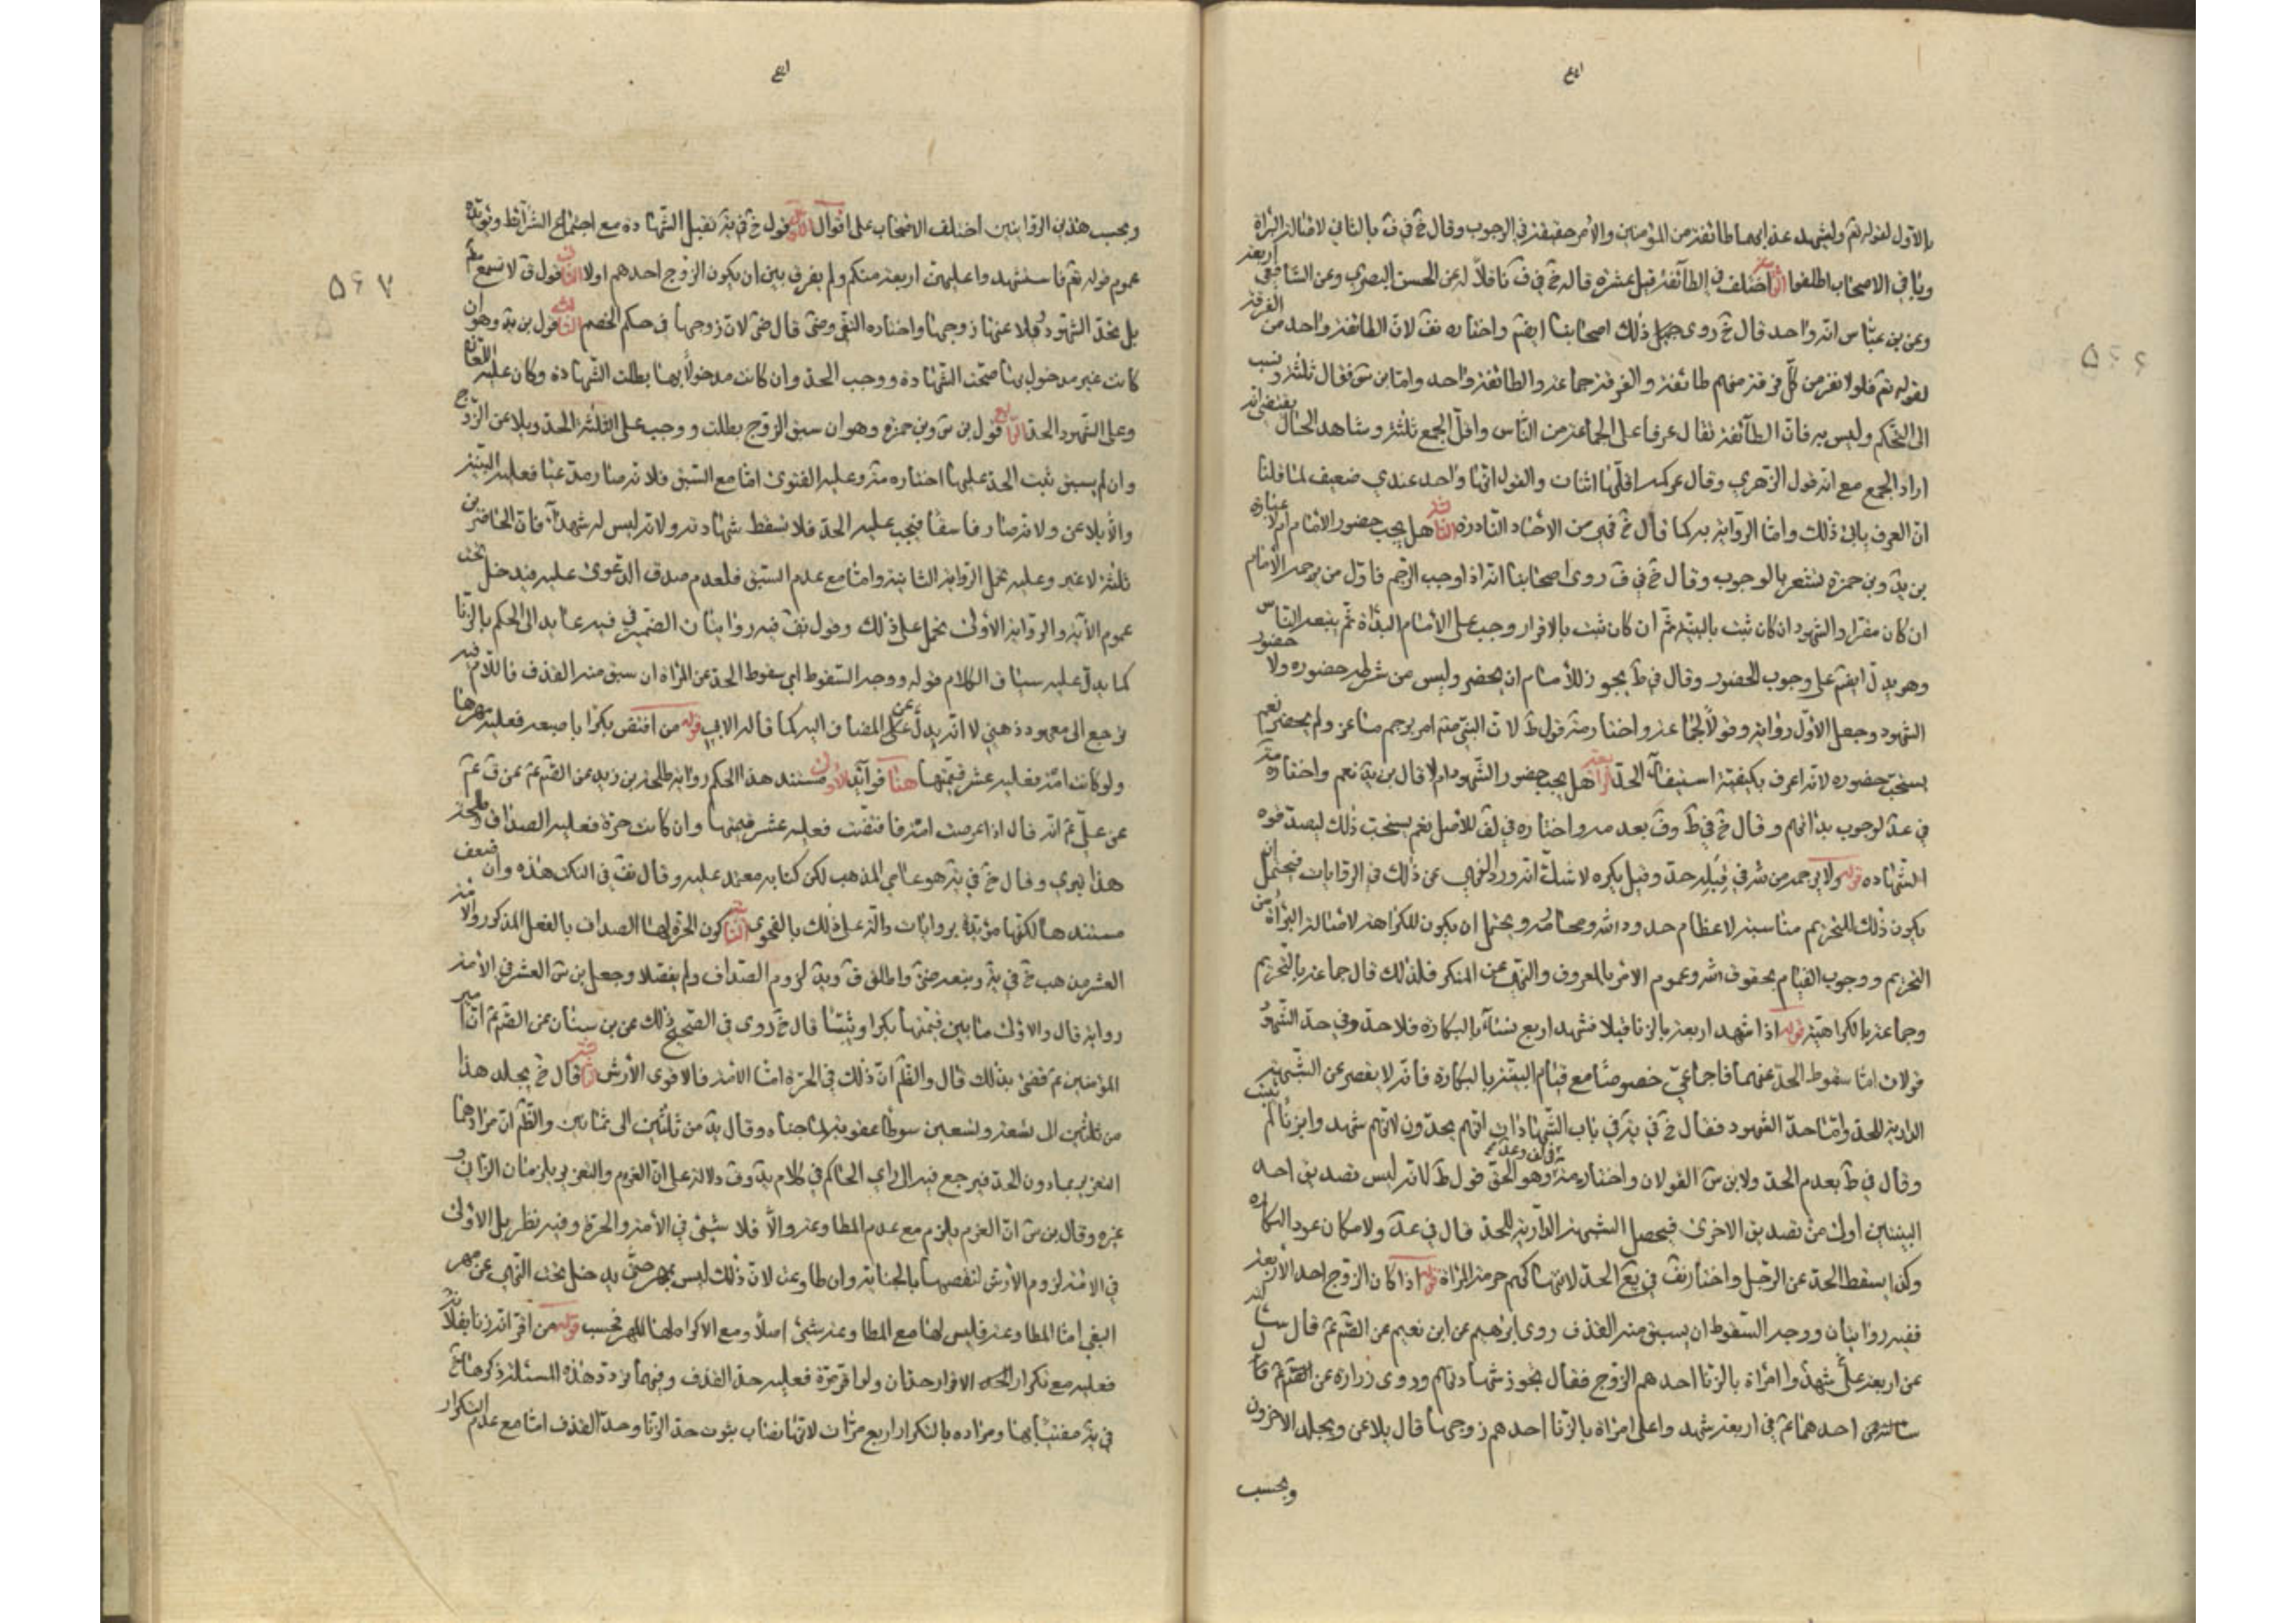 بالاول لقوله تع وليشهد عذابهما طائفة من المؤمنين والامر حقيقة في الوجوب وقال خ في ف بالثاني لاصالة البرائة
وباقي الاصحاب اطلقوا الثالث اختلف في الطائفة قيل عشرة قاله خ في ف ناقلا له عن الحسن البصري وعن الشافعي اربعة
وعن بن عباس انه واحد قال خ روى ذلك اصحابنا ايضا واختاره لان الطائفة واحد من الفرقة
لقوله تع فلولا نفر من كل فرقة منهم طائفة والفرقة جماعة والطائفة واحد واما بن س فقال ثلثة ونسب
الى التحكم وليس به فان الطائفة تقال عرفا على الجماعة من الناس واقل الجمع ثلثة وشاهد الحال يقتضي انه
اراد الجمع مع انه قول الزهري وقال عكرمة اقلها اثنان والقول انها واحد عندي ضعيف لما قلنا
ان العرف يأبى ذلك واما الرواية به كما قال خ فهي من الاخبار النادرة هل يجب حضور الامام ام لا عبارة
بن يد وبن حمزة تشعر بالوجوب وقال خ في ف روى اصحابنا انه اذا وجب الرجم فاول من يرجمه الامام
ان كان مقرا والشهود ان كان ثبت بالبينة ثم ان كان ثبت بالاقرار وجب على الامام البدأة ثم يتبعه الناس
وهو يدل ايضا على وجوب الحضور وقال في ط يجوز للامام ان يحضر وليس من شرطه حضوره ولا حضور
الشهود وجعل الاول رواية وقولا لجماعة واختار قول ط لان النبي امر برجم ماعز ولم يحضر نعم
يستحب حضوره لانه اعرف بكيفية استيفاء الحد هل يجب حضور الشهود ام لا قال بن يد نعم واختاره
في عد لوجوب بدأتهم وقال خ في ط وف بعدمه واختاره في لف للاصل نعم يستحب ذلك ليصدقوه
الشهاده قوله ولا يرجمه من لله في قبله حد وقيل يكره لا شك انه ورد النهي عن ذلك في الروايات فيحتمل ان
يكون ذلك للتحريم مناسبة لاعظام حدود الله ومحارمه ويحتمل ان يكون للكراهة لاصالة البرائة من
التحريم ووجوب القيام بحقوق الله وعموم الامر بالمعروف والنهي عن المنكر فلذلك قال جماعة بالتحريم
وجماعة بالكراهية قوله اذا شهد اربعة بالزنا قبلا فشهد اربع نساء بالبكارة فلا حد وفي حد الشهود
قولان اما سقوط الحد عنهما فاجماعي خصوصا مع قيام البينة بالبكارة فانه لا يقصر عن الشبهة
الدارية للحد واما حد الشهود فقال خ في يه في باب الشهادات انهم يحدون لانهم شهدوا بزنا لم يثبت
وقال في ط بعدم الحد ولابن س القولان واختاره وهو الحق قول ط لانه ليس تصديق احد
البينتين اولى من تصديق الاخرى فيحصل الشبهة الدارية للحد قال في عد ولامكان عود البكارة
وكذا يسقط الحد عن الرجل واختار في يع الحد لانها كهي حرمة المرأة قوله اذا كان الزوج احد الاربعة
ففيه روايتان ووجه السقوط ان يسبق منه القذف روى ابراهيم عن ابن نعيم عن الص ع قال سالته
عن اربعة شهدوا على امرأة بالزنا احدهم الزوج فقال يجوز شهادتهم وروى زرارة عن
احدهما ع في اربعة شهدوا على امرأة بالزنا احدهم زوجها قال يلاعن ويجلد الاخرون
وبحسب
وبحسب هذين الروايتين اختلف الاصحاب على اقوال الاول قول خ في يه تقبل الشهادة مع اجتماع الشرائط ويؤيده
عموم قوله تع فاستشهدوا عليهن اربعة منكم ولم يفرق بين ان يكون الزوج احدهم اولا الثاني قول ق لا تسمع
بل يحد الشهود ويلاعنها زوجها واختاره التقي قال لان زوجها في حكم الخصم الثالث قول بن يد وهو ان
كانت غير مدخول بها صحت الشهادة ووجب الحد وان كانت مدخولا بها بطلت الشهادة وكان عليه اللعان
وعلى الشهود الحد الرابع قول بن س وبن حمزة وهو ان سبق الزوج بطلت ووجب على الثلثة الحد ويلاعن الزوج
وان لم يسبق ثبت الحد عليها اختاره وعليه الفتوى اما مع السبق فلانه صار مدعيا فعليه البينة
والا يلاعن ولانه صار فاسقا فيجب عليه الحد فلا تسقط شهادته ولانه ليس له شهداء فان الحاضرين
ثلثة لا غير وعليه تحمل الرواية الثانية واما مع عدم السبق فلعدم صدق الدعوى عليه فيدخل تحت
عموم الاية والرواية الاولى تحمل على ذلك وقول فيه روايتان الضمير في فيه عايد الى الحكم بالزنا
كما يدل عليه سياق الكلام قوله ووجه السقوط اي سقوط الحد عن المرأة ان سبق منه القذف فاللام فيه
يرجع الى معهود ذهني لا انه يدل على المضاف اليه كما قاله الابي قوله من افتض بكرا باصبعه فعليه مهرها
ولو كانت امة فعليه عشر قيمتها هنا فوائد الاول مستند هذا الحكم رواية طلحة بن زيد عن الص ع عن ق ع
عن علي ع انه قال اذا اغتصب امة فافتضت فعليه عشر قيمتها وان كانت حرة فعليه الصداق وطلحة
هذا بتري وقال خ في يه هو عامي المذهب لكن كتابه معتمد عليه وقال في النكت هذه وان ضعف
مستندها لكنها مؤيدة بروايات دالة على ذلك بالفحوى الثاني كون الحرة لها الصداق بالفعل المذكور والامة
العشر مذهب خ في يه وتبعه واطلق ق ويد لزوم الصداق ولم يفصلا وجعل بن س العشر في الامة
رواية قال والاولى ما بين قيمتها بكرا وثيبا قال خ روى في الصحيح ذلك عن بن سنان عن الص ع ان امير
المؤمنين ع قضى بذلك قال والظ ان ذلك في الحرة اما الامة فالاقوى الارش الثالث قال خ يجلد هذا
من ثلثين الى تسعة وتسعين سوطا عقوبة لما جناه وقال يد من ثلثين الى ثمانين والظ ان مرادهما
التعزير بما دون الحد فيرجع فيه الى راي الحاكم في كلام يد وق دلالة على ان الغرم والتعزير يلزمان الزاني
غيره وقال بن س ان الغرم يلزم مع عدم المطاوعة والا فلا شيئ في الامة والحرة وفيه نظر بل الاولى
في الامة لزوم الارش لنقصها بالجناية وان طاوعت لان ذلك ليس بمهر حتى يدخل تحت النهي عن مهر
البغي اما المطاوعة فليس لها مع المطاوعة شيئ اصلا ومع الاكراه لها المهر فحسب قوله من اقر انه زنا بفلانة
فعليه مع تكرار الاقرار حدان ولو اقر مرة فعليه حد القذف وفيهما تردد هذه المسئلة ذكرها خ
في يه مفتيا بها ومراده بالتكرار اربع مرات لانها نصاب ثبوت حد الزنا وحد القذف اما مع عدم التكرار